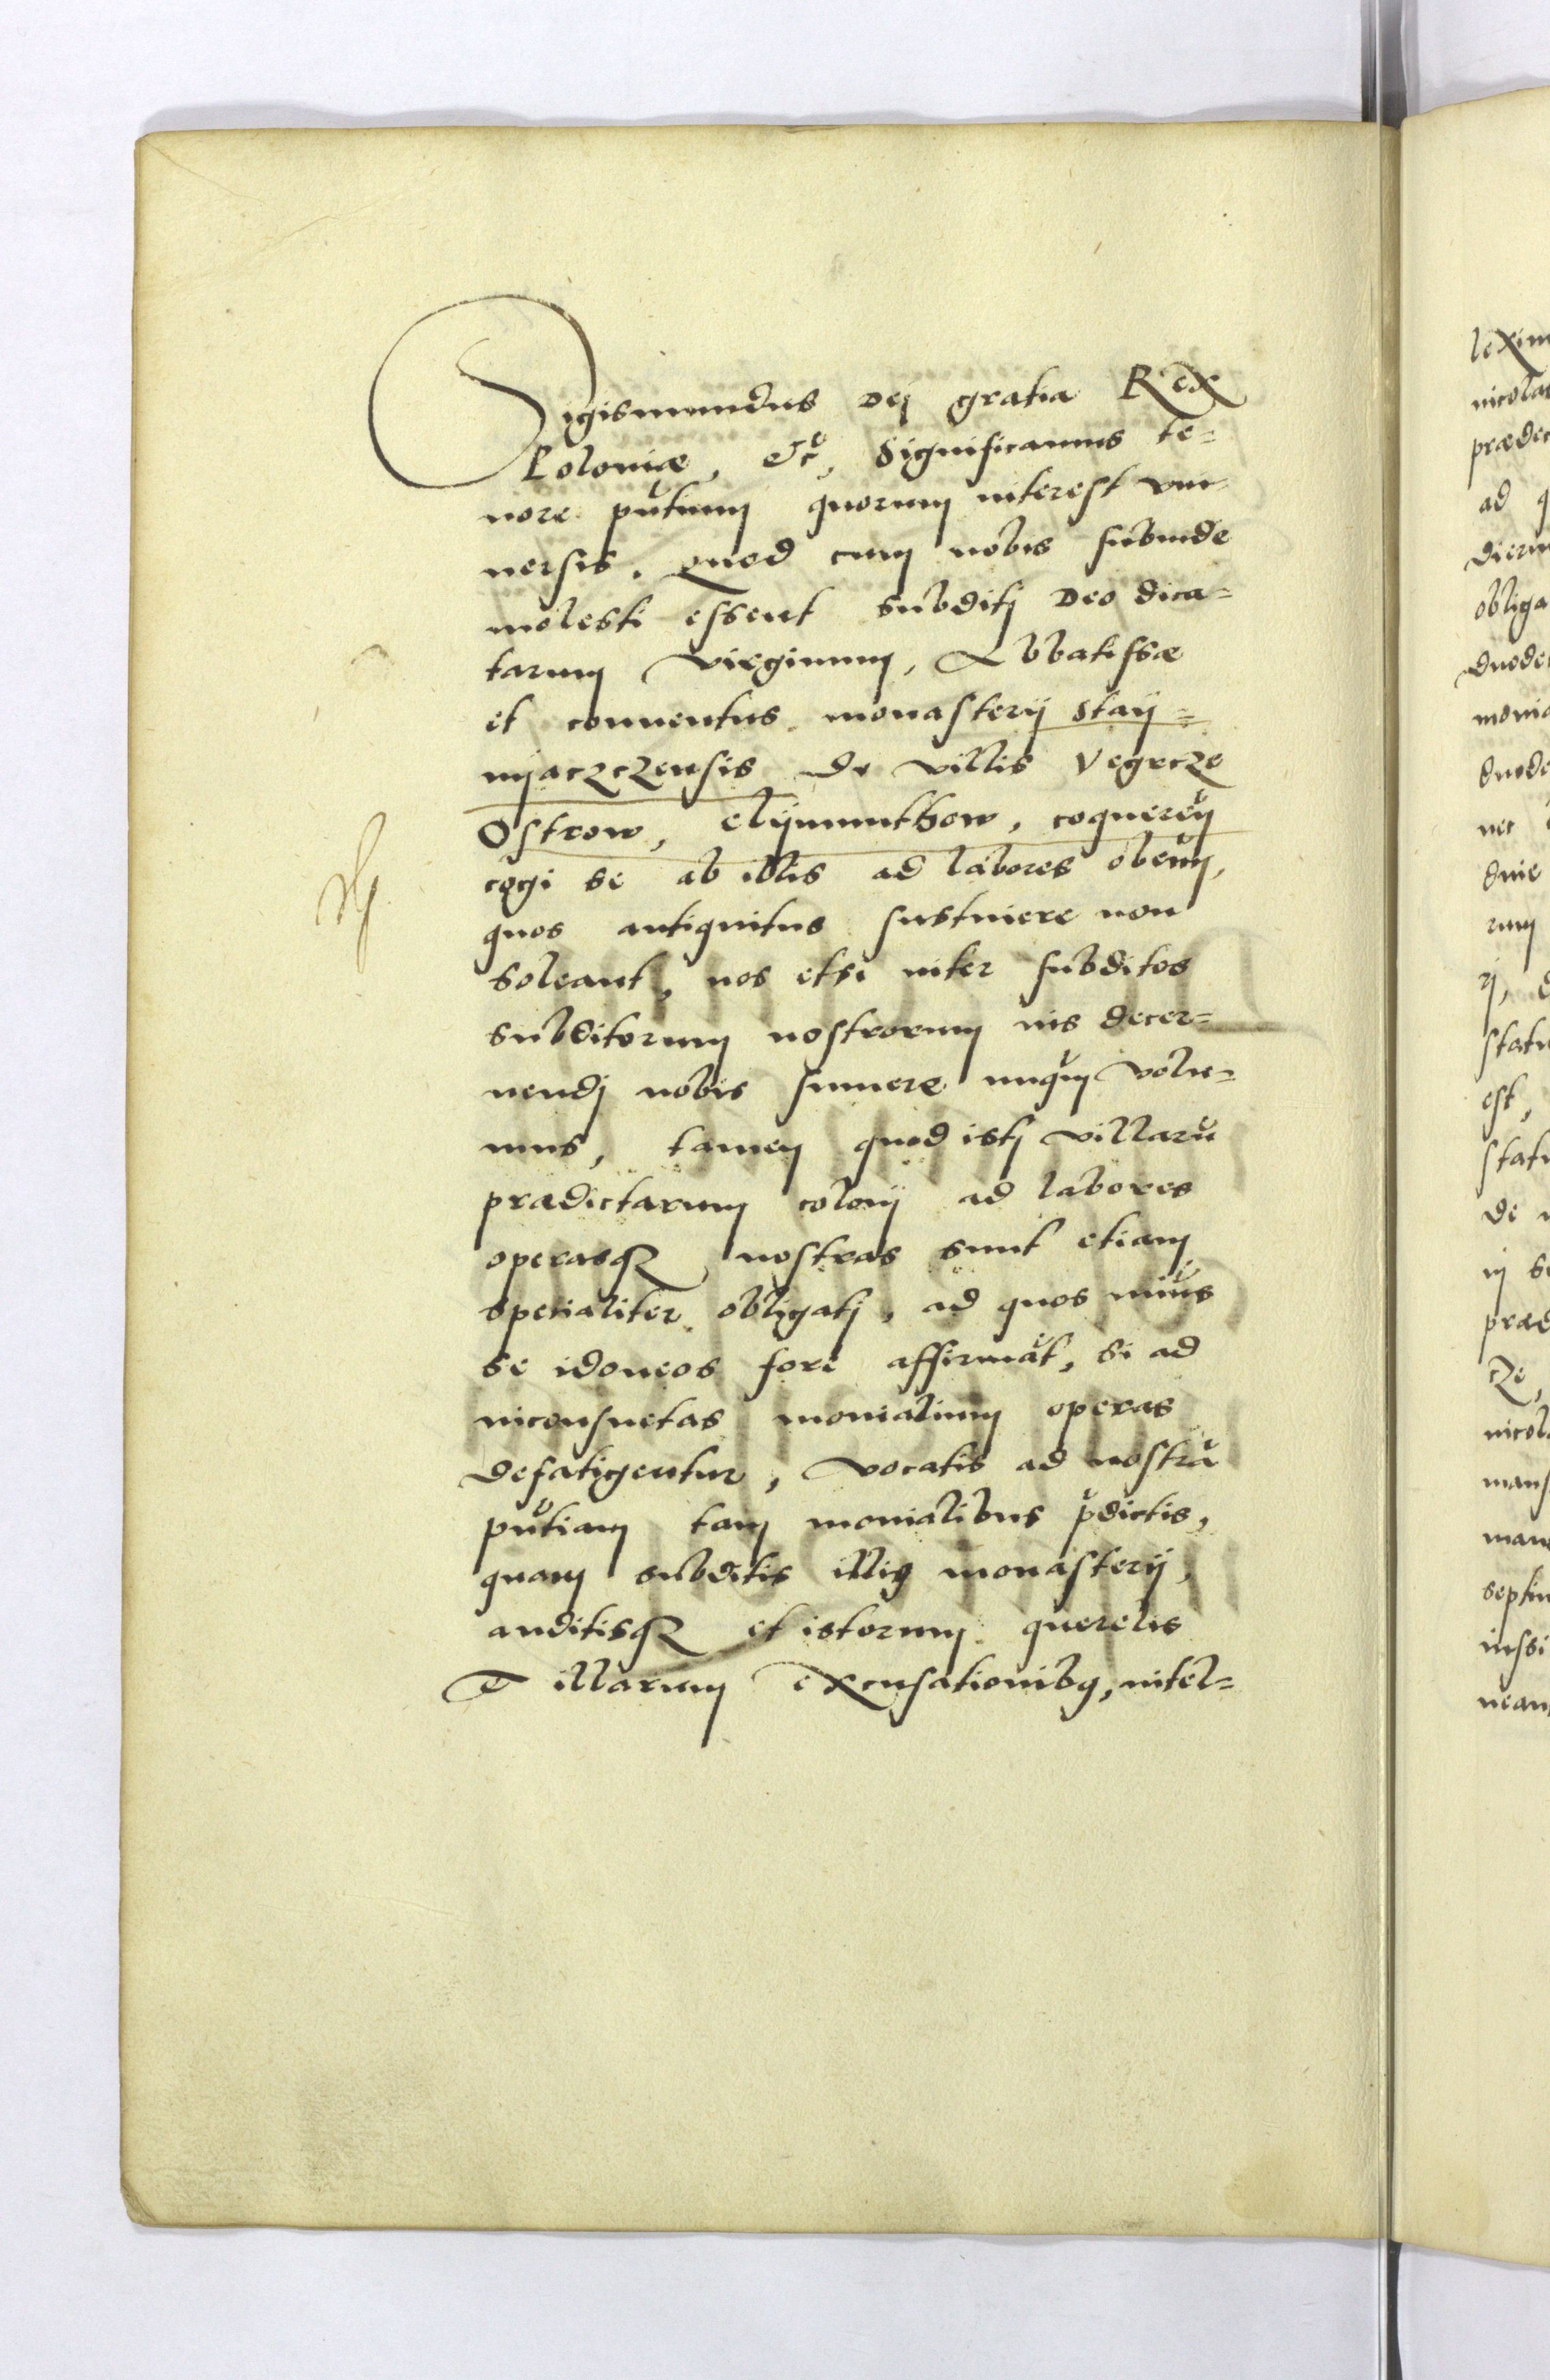 Sigismundus Dej gratia Rex
Poloniæ, &c, Significamus te=
nore pñtium quorum interest vni-
uersis. Quod cum nobis subinde
molesti essent subditj Deo dica=
tarum virginum, Abbatissæ
et conuentus monasterij Staij=
nijaczczensis de villis Vegrcze
Ostrow, Clijmunthow, coquerẽtur
cogi se ab illis ad labores obeũdos,
quos antiquitus sustinere non
soleant, nos etsi inter subditos
subditorum nostrorum ius decer=
nendj nobis sumere nuq̃m volu=
mus, tamen quod istj villarũ
prædictarum colonj ad labores
operasq3 nostras sunt etiam
specialiter obligatj, ad quos minus
se idoneos fore affirmãt, si ad
inconsuetas monialium operas
defatigentur, vocatis ad nostrã
pñtiam tam monialibus p̃dictis,
quam subditis illis monasterij,
auditisq3 et istorum querelis
& illarum excusationibus, intel=
lexim
nicola
prædic
ad q
dierum
obliga
duode
monia
duode
nec
rum
statu
est,
statu
de
præd
cze,
nicol
mans
septim
iussi
neant